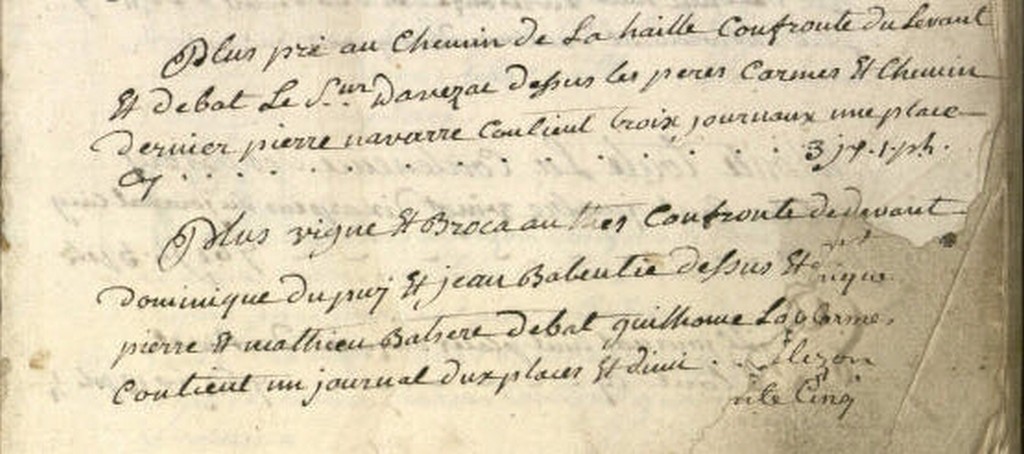 Plus pré au Chemin de La haille Confronte du Levant
Et debat Le S.ur Davezac dessus les peres Carmes Et Chemin
dernier pierre navarre Contient troix journaux une place
Cy . . . . . . . . . . . . . 3 jx. 1. ph.
Plus vigne Et Broca au Confronte de devant
dominique dupuy Et jean Babentie dessus Et
pierre Et mathieu Batsere debat guilhome
Contient un journal dux places Et dimi . .
Cinq